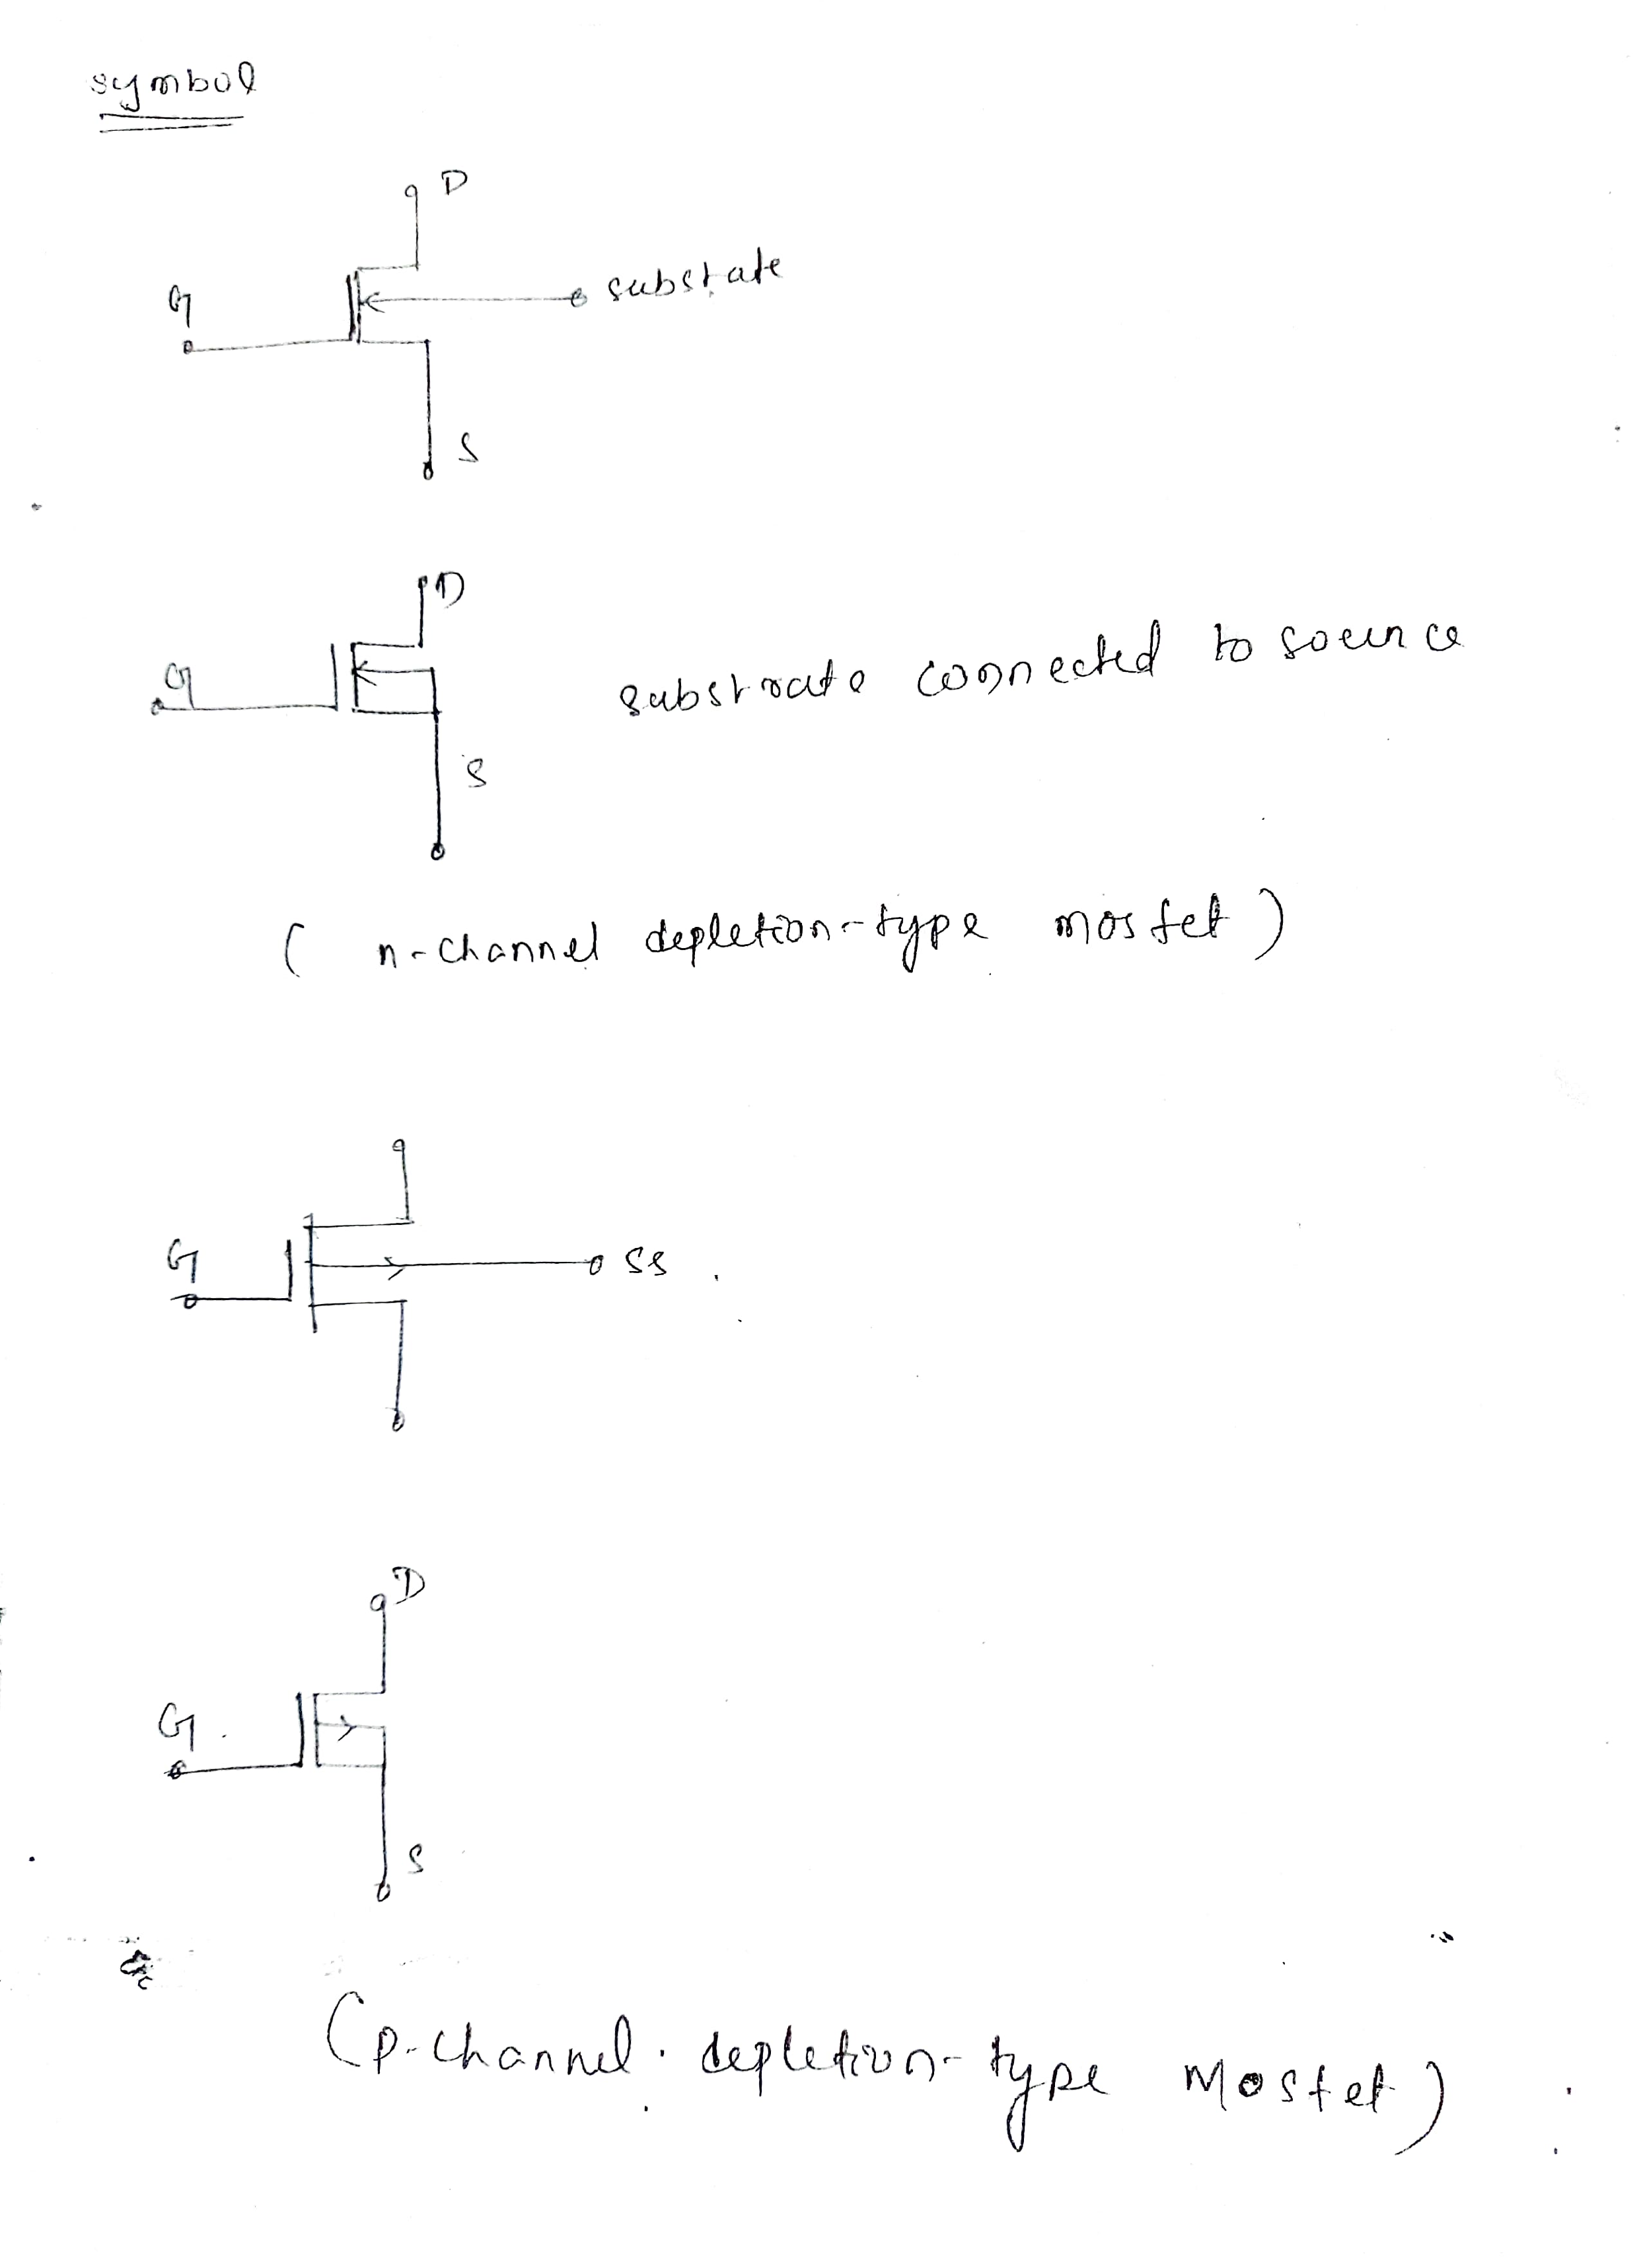 symbol
D
G
substate
S
D
G
substrate connected to source
S
(n-channel depletion-type mosfet)
G
SS
D
G
S
(p-channel depletion-type Mosfet)